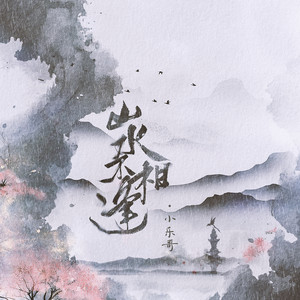 山水不相逢
·小乐哥